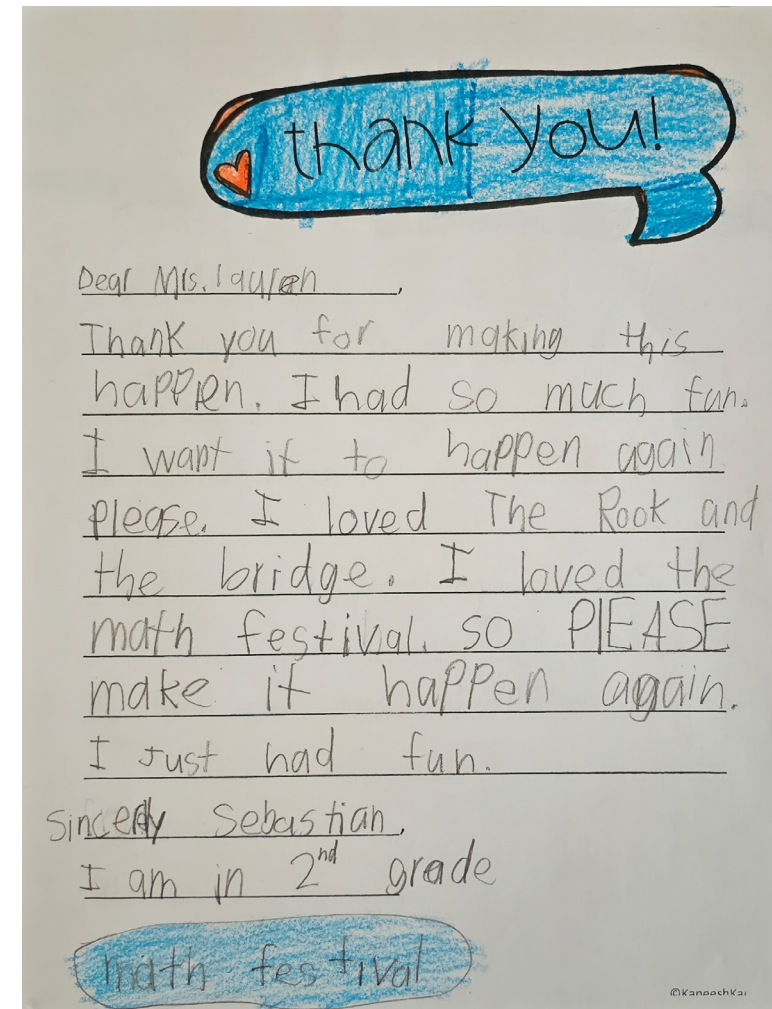 thank you!
Dear Mrs. lauren,
Thank you for making this
happen. I had so much fun.
I want it to happen again
please. I loved The Rook and
the bridge. I loved the
math festival. so PlEASE
make it happen again.
I Just had fun.
Sincerly Sebastian,
I am in 2nd grade
math festival
©KaneechKai